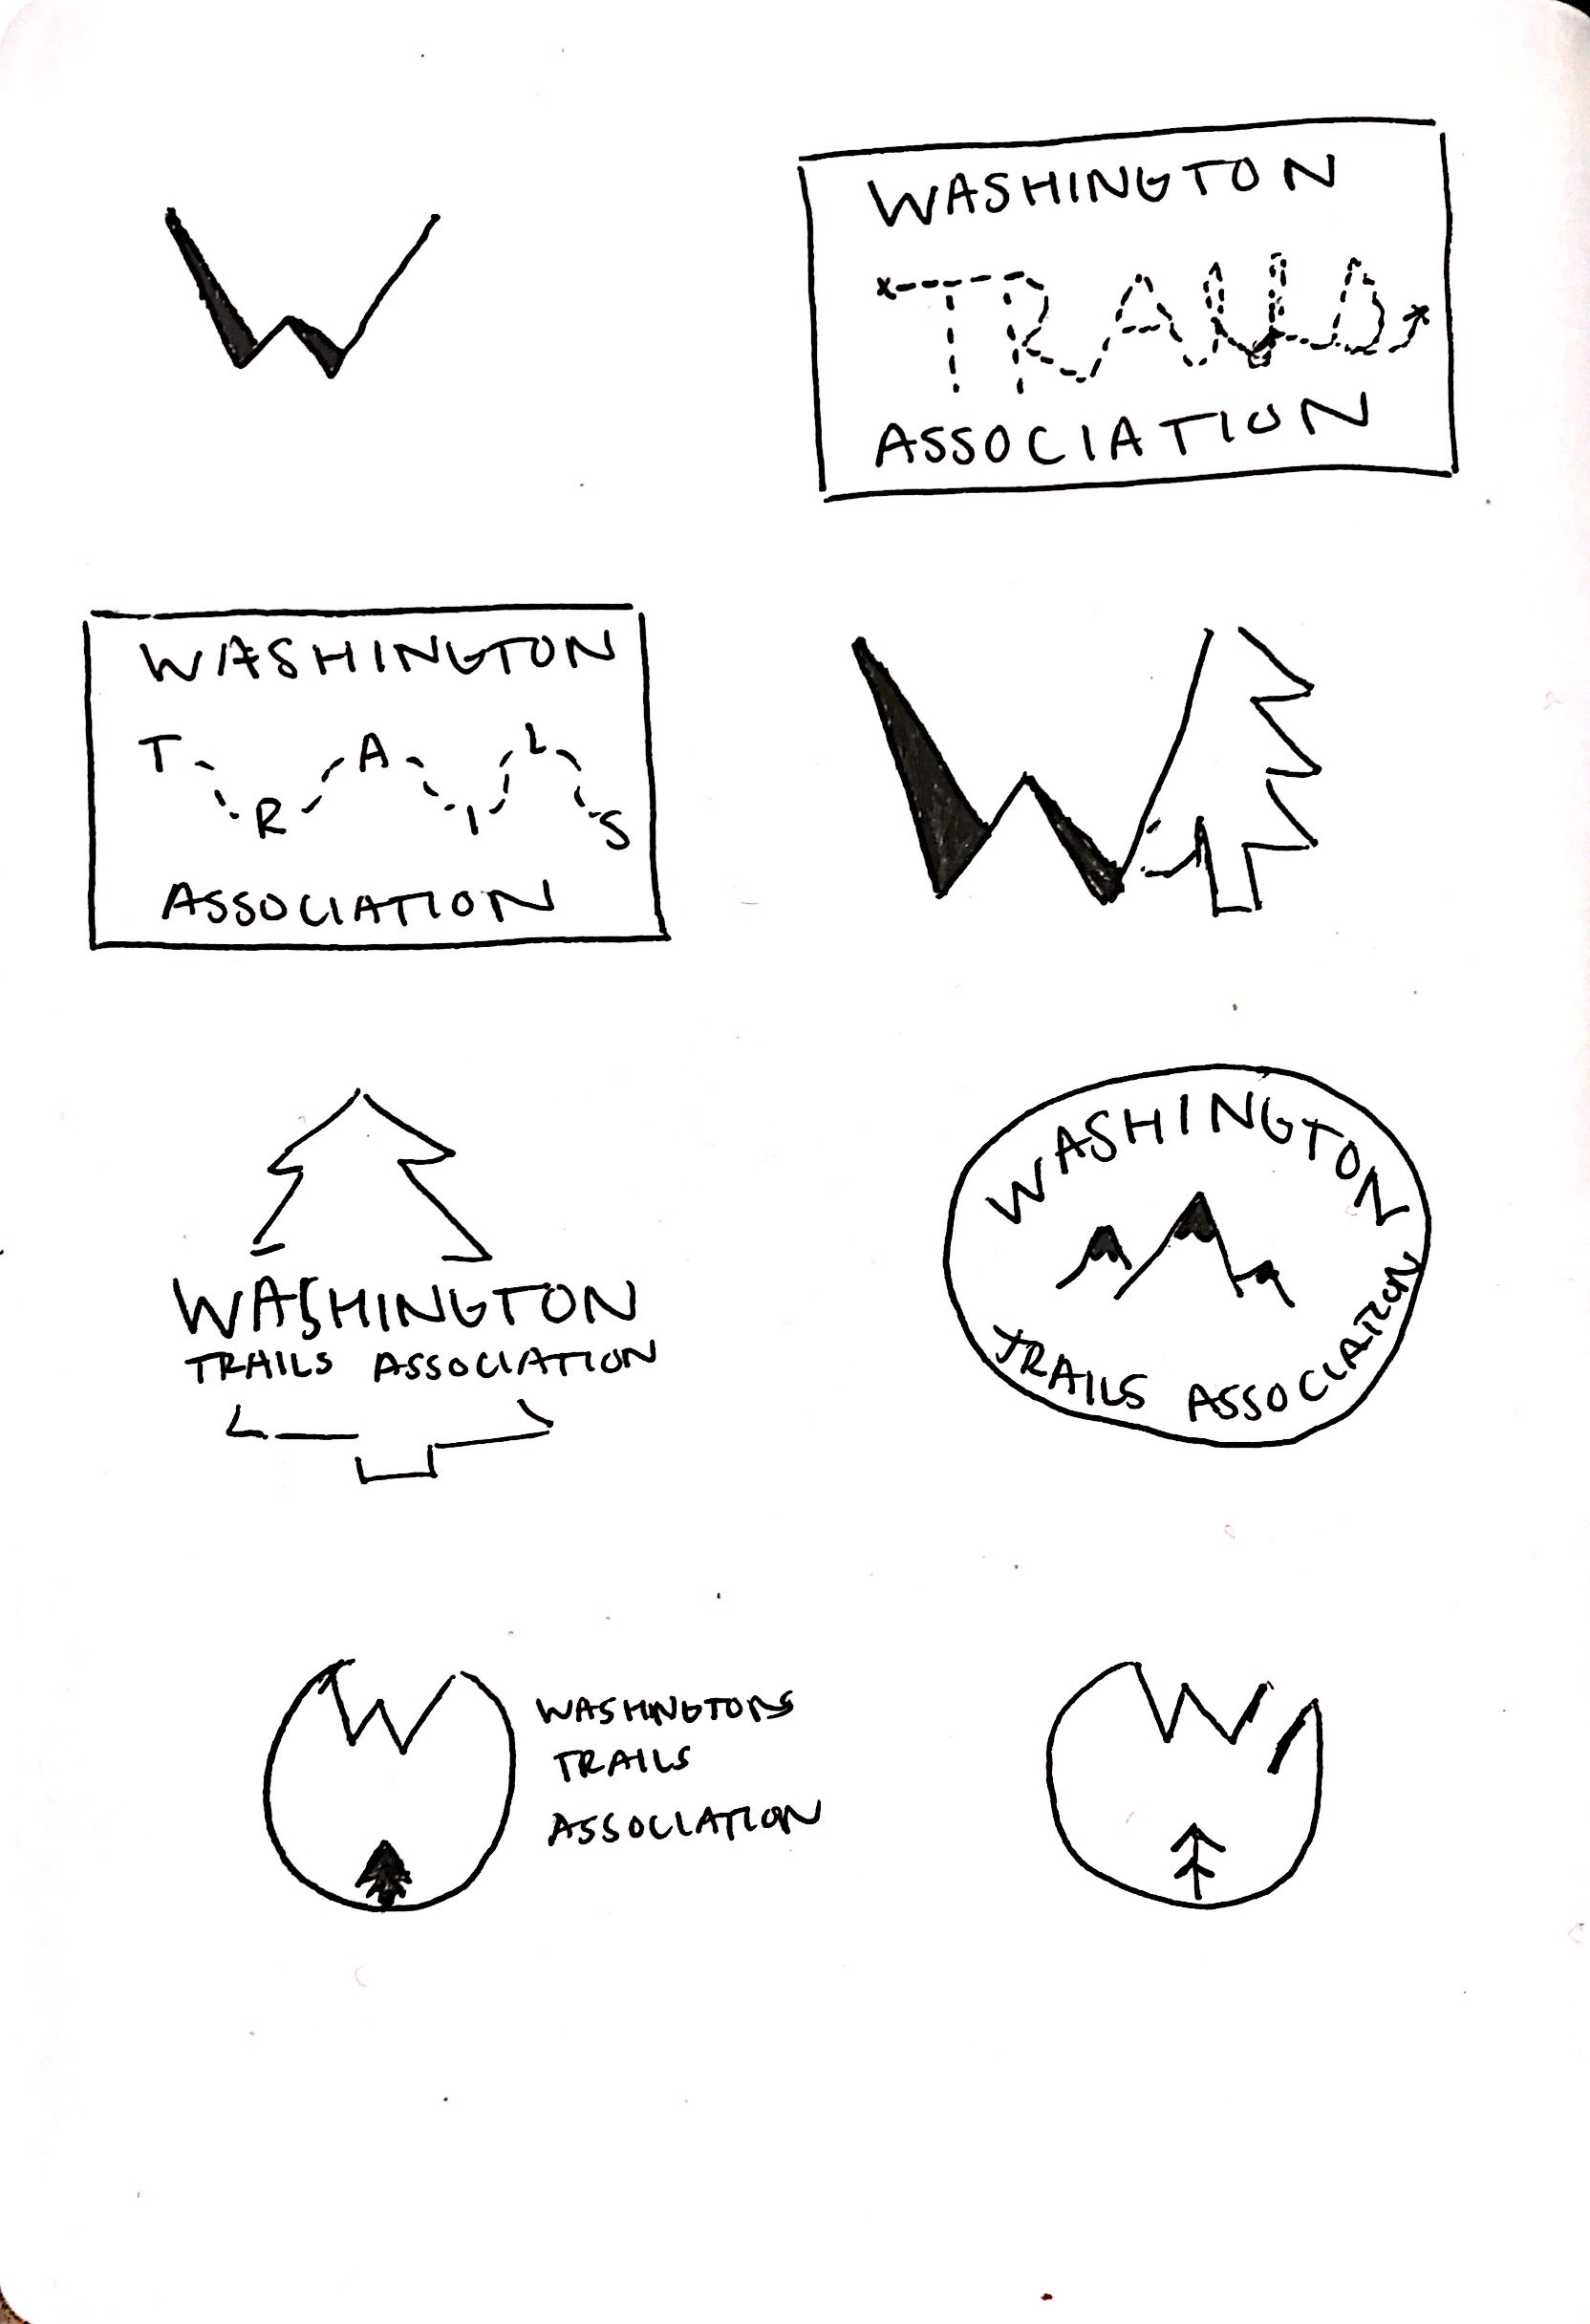 W
WASHINGTON
TRAILS
ASSOCIATION
WASHINGTON
TRAILS
ASSOCIATION
W
WASHINGTON
TRAILS ASSOCIATION
WASHINGTON
TRAILS ASSOCIATION
W
WASHINGTONS
TRAILS
ASSOCIATION
W